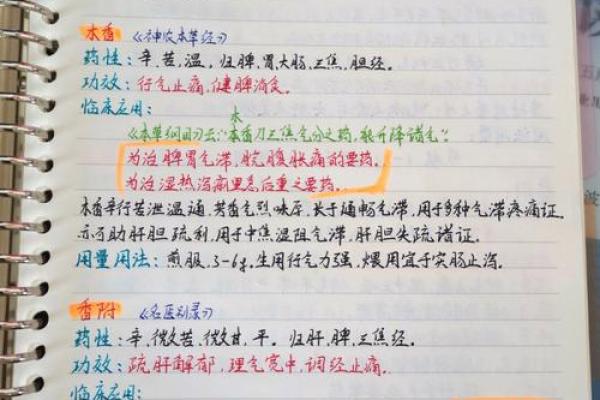 木香 《神农本草经》
药性：辛、苦，温，归脾、胃、大肠、三焦、胆经。
功效：行气止痛，健脾消食。
临床应用：
木
《本草纲目》云："木香乃三焦气分之药，能升降诸气"。
为治脾胃气滞，脘腹胀痛的要药。
为治湿热泻痢里急后重之要药。
木香辛行苦泄温通，芳香气烈味厚，长于通畅气滞，用于多种气滞疼痛证。
亦可助肝胆疏利，用于中焦湿阻气滞，肝胆失疏诸证。
用量用法：煎服，3-6g。生用行气力强，煨用宜于实肠止泻。
香附 《名医别录》
药性：辛、微苦、微甘，平。归肝、脾、三焦经。
功效：疏肝解郁，理气宽中，调经止痛。
临床应用：